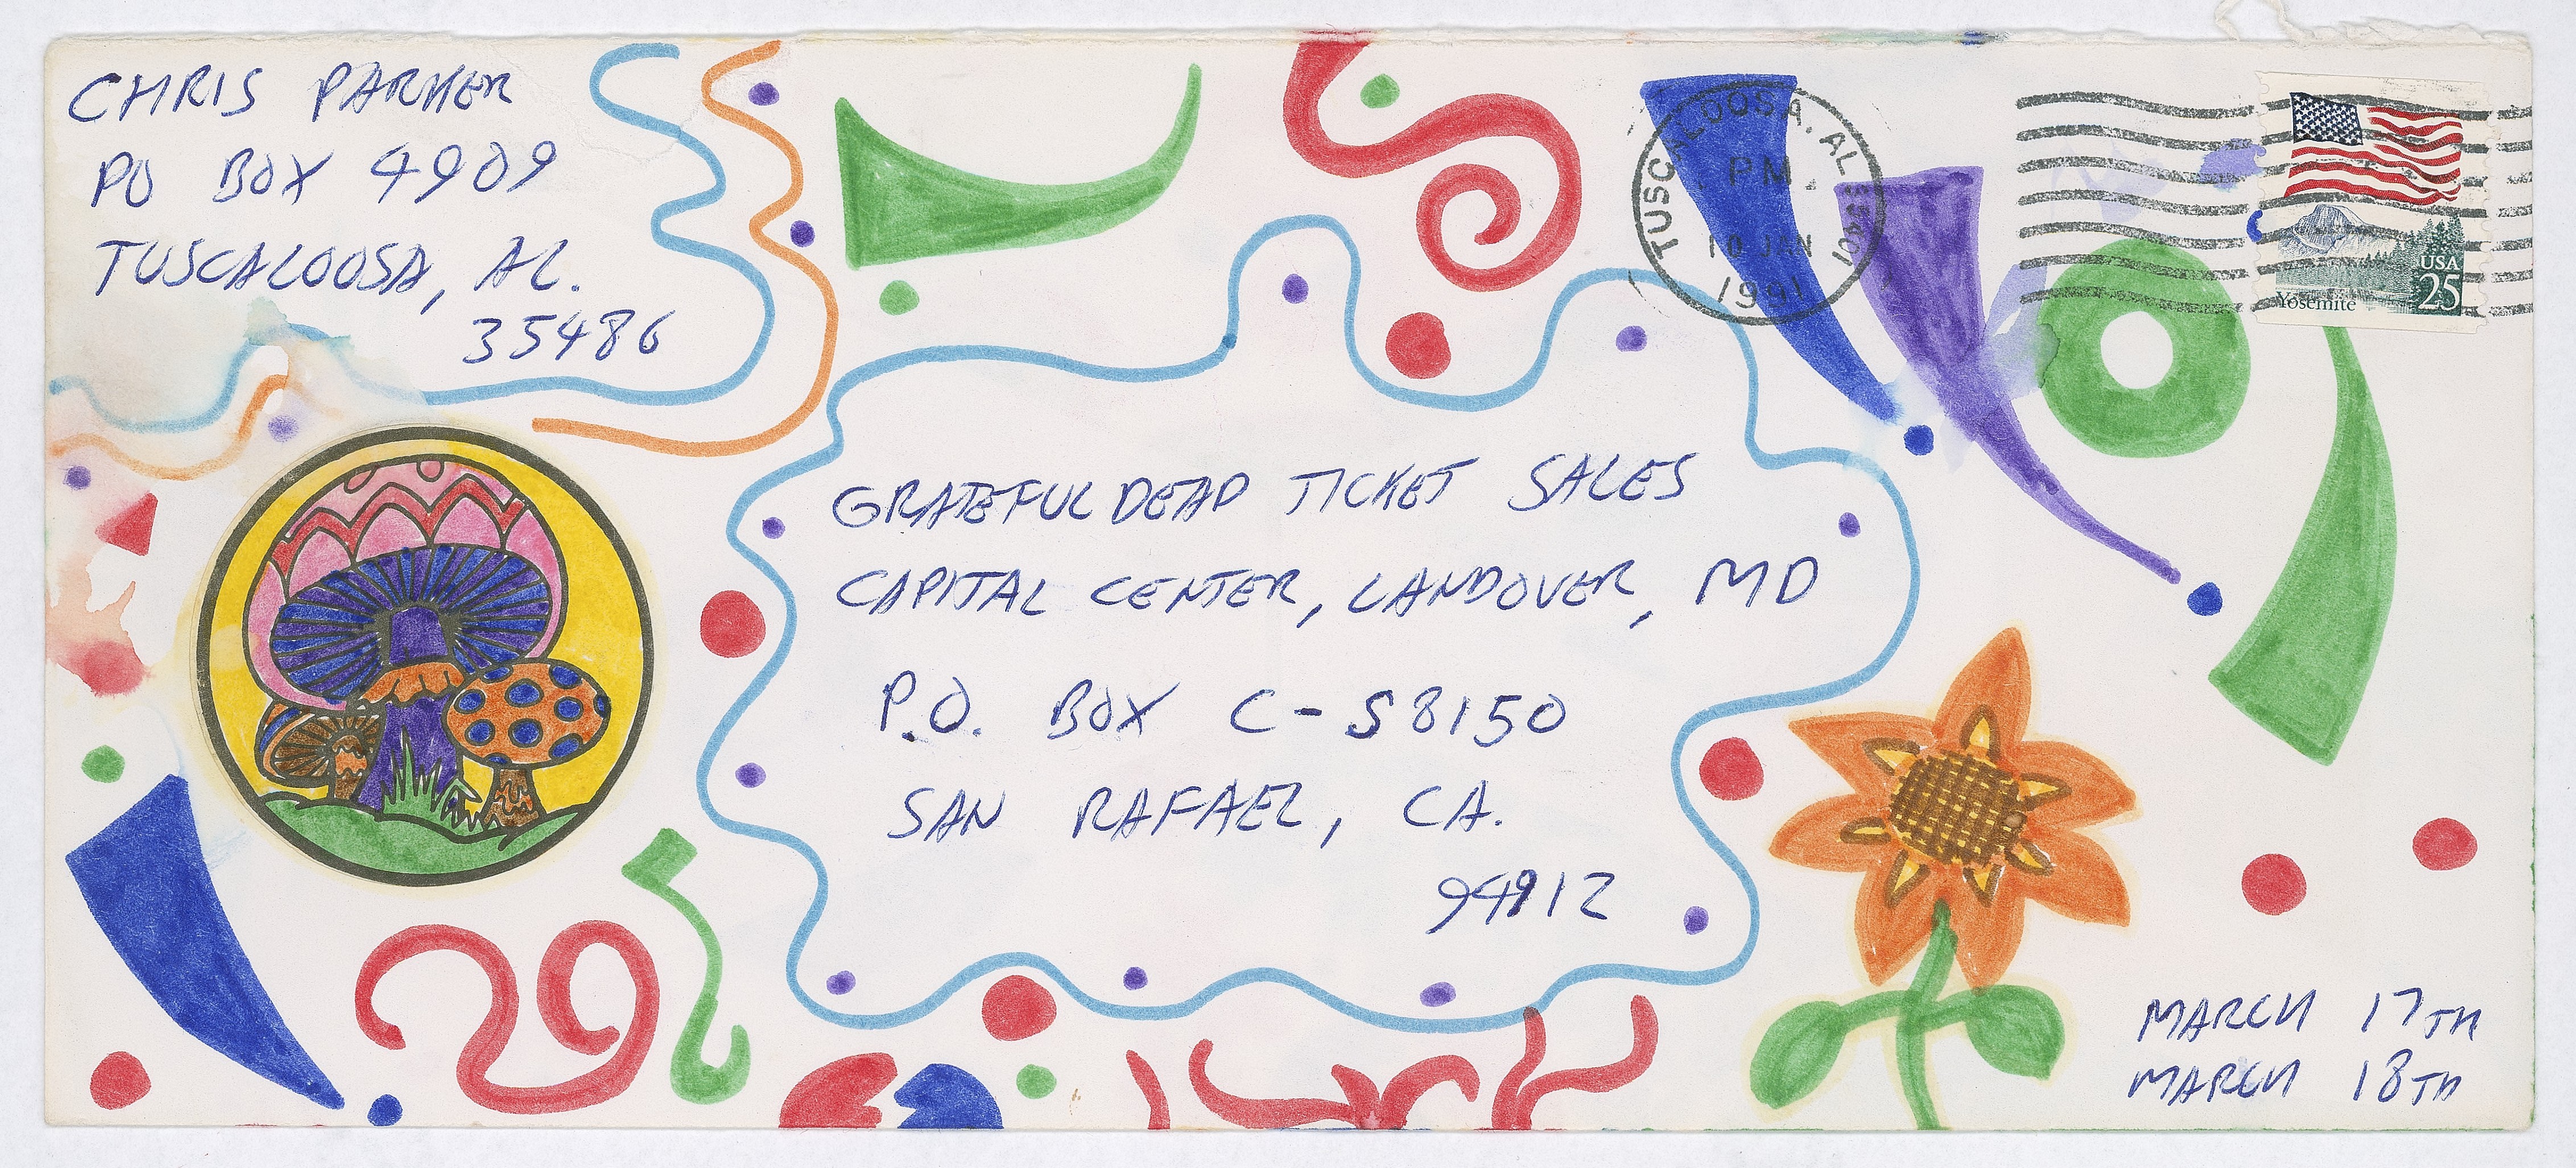 CHRIS PARKER
PO BOX 4909
TUSCALOOSA, AL.
35486
TUSCALOOSA, AL 35401
PM
10 JAN
1991
USA
25
Yosemite
GRATEFUL DEAD TICKET SALES
CAPITAL CENTER, LANDOVER, MD
P.O. BOX C-S8150
SAN RAFAEL, CA.
94912
MARCH 17TH
MARCH 18TH